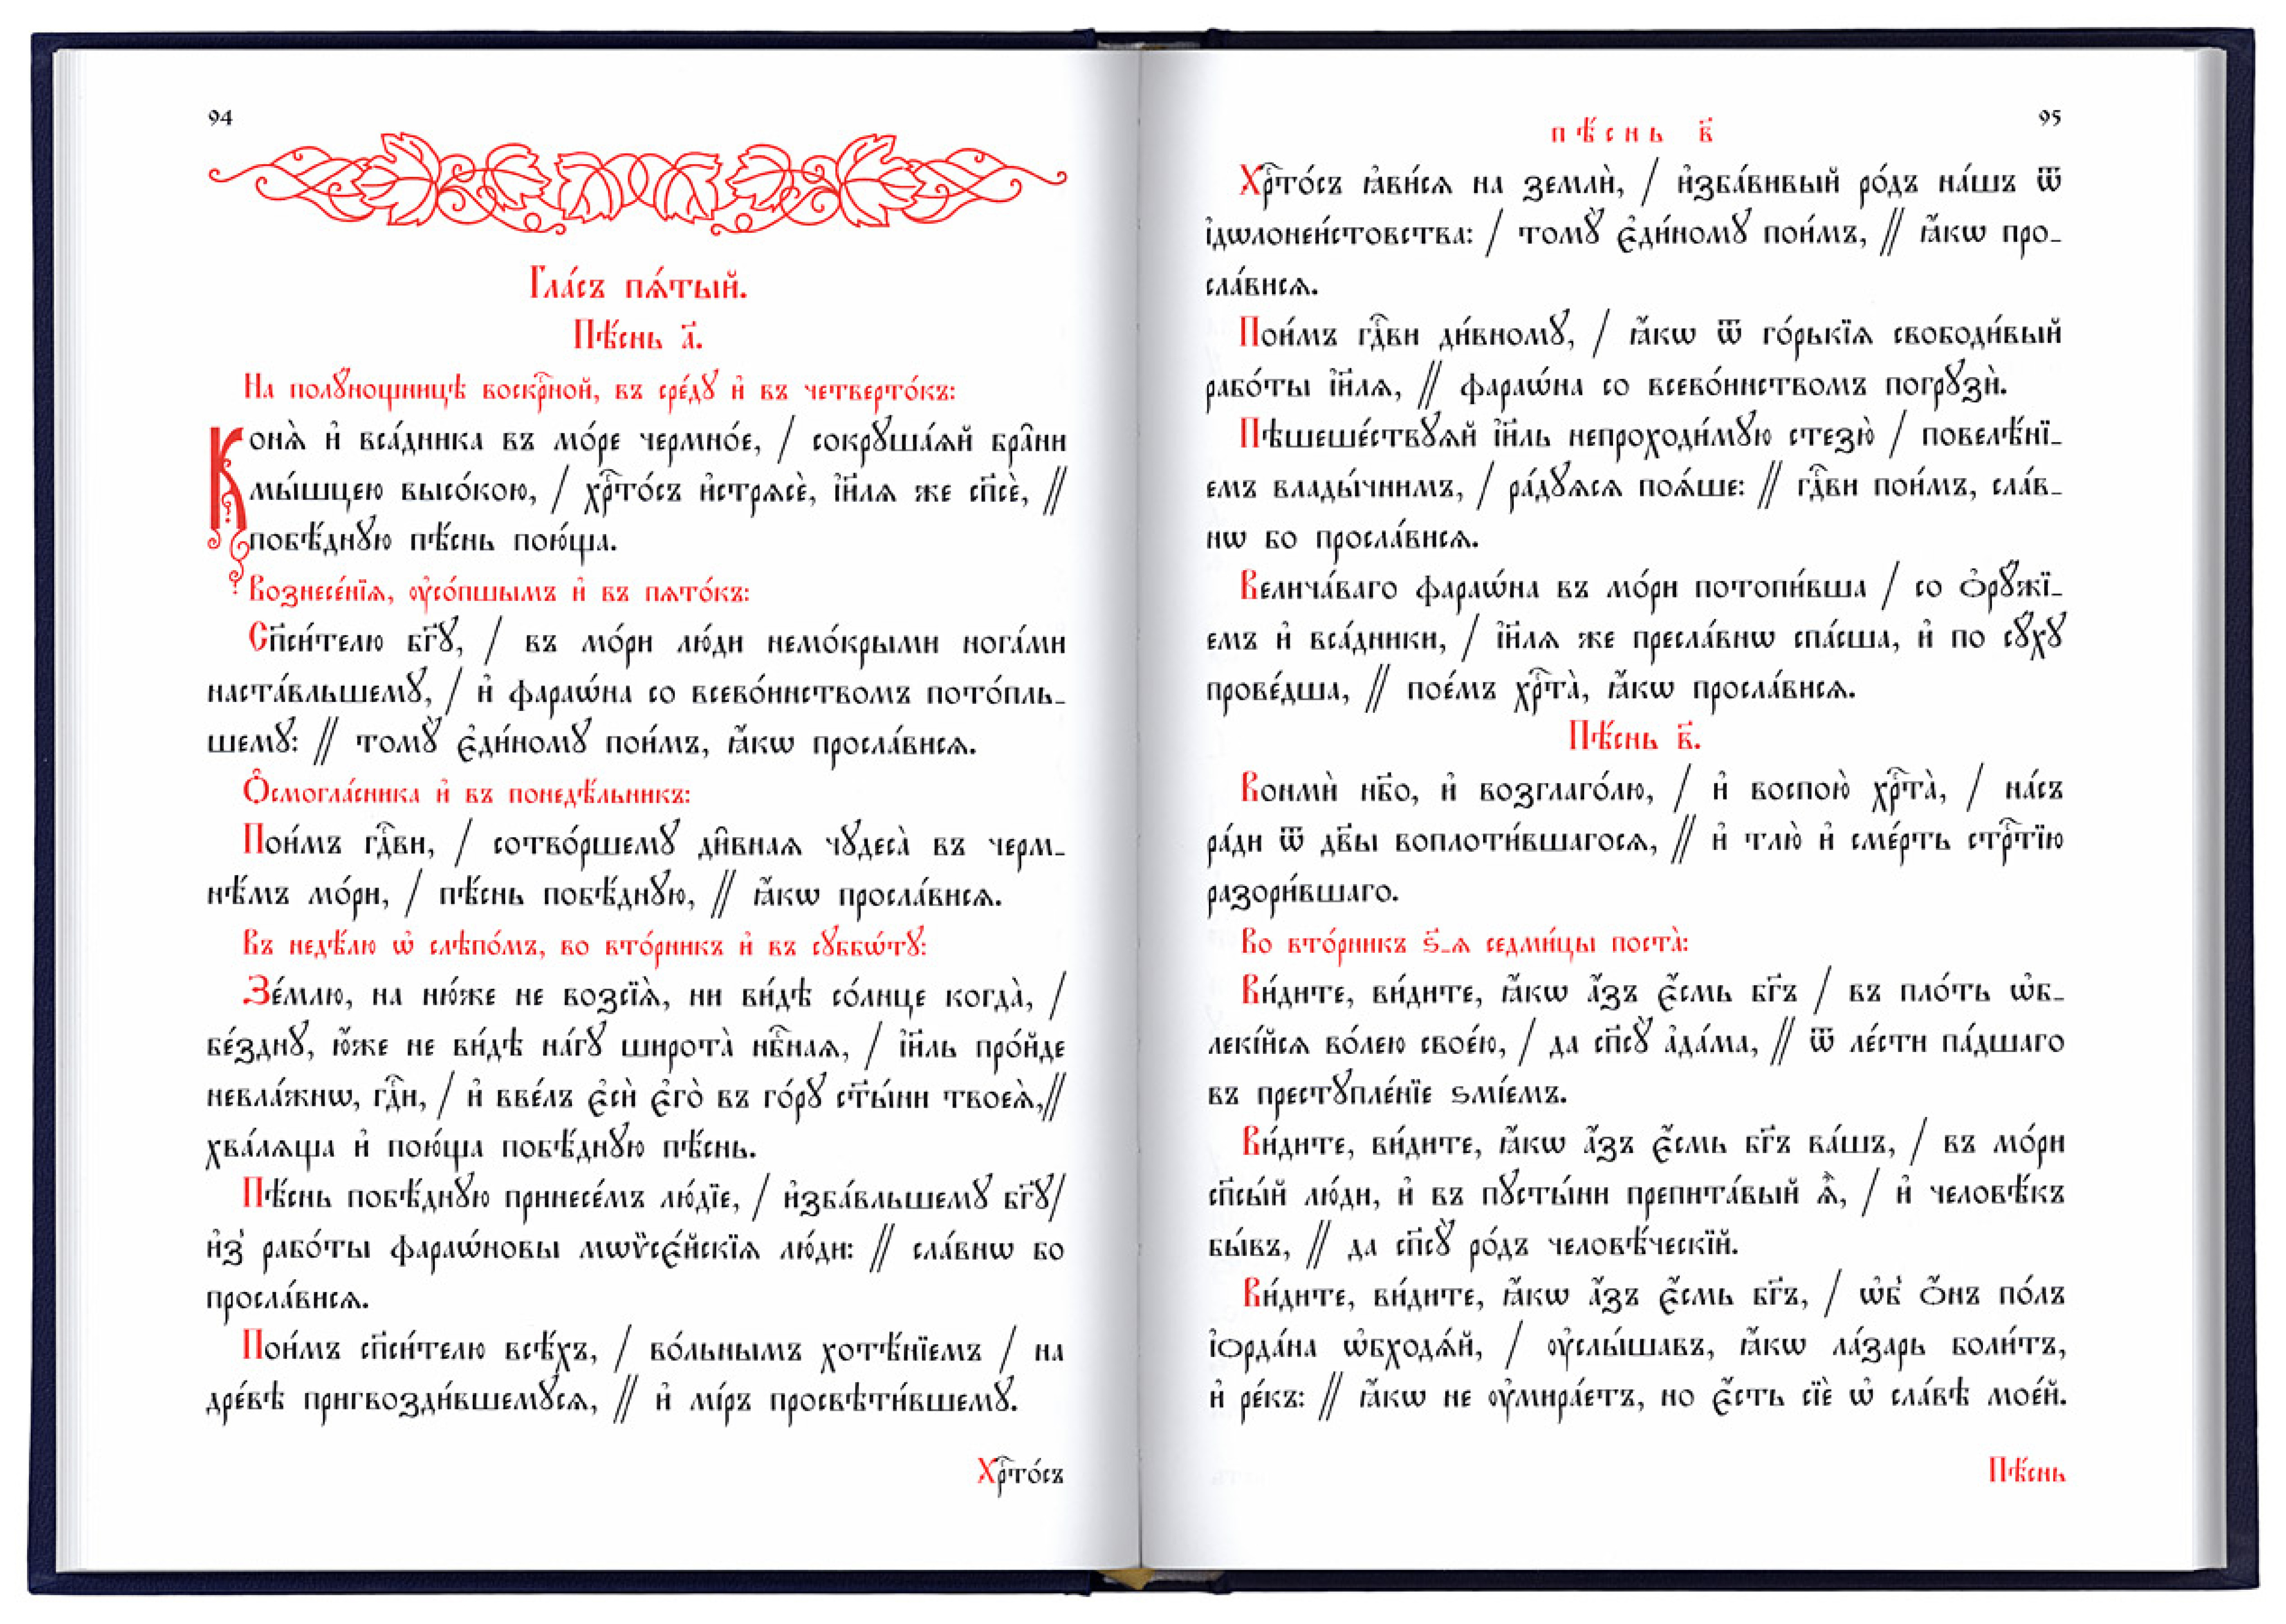 94
Гла́съ пѧ́тый.
Пѣ́снь а҃.
На полꙋ́нощницѣ воскрⷭ҇ной, въ сре́дꙋ и҆ въ четверто́къ:
Конѧ̀ и҆ вса́дника въ мо́ре чермно́е, / сокрꙋша́ѧй бра̑ни
мы́шцею высо́кою, / хрⷭ҇то́съ и҆стрѧсѐ, і҆и҃лѧ же сп҃сѐ, //
побѣ́днꙋю пѣ́снь пою́ща.
Вознесе́нїѧ, ᲂу҆со́пшымъ и҆ въ пѧто́къ:
Сп҃си́телю бг҃ꙋ, / въ мо́ри лю́ди немо́крыми нога́ми
наста́вльшемꙋ, / и҆ фараѡ́на со всево́инствомъ пото́пль_
шемꙋ: // томꙋ̀ є҆ди́номꙋ пои́мъ, ꙗ҆́кѡ просла́висѧ.
Ѻ҆смогла́сника и҆ въ понедѣ́льникъ:
Пои́мъ гдⷭ҇ви, / сотво́ршемꙋ ди̑внаѧ чꙋдеса̀ въ черм_
нѣ́мъ мо́ри, / пѣ́снь побѣ́днꙋю, // ꙗ҆́кѡ просла́висѧ.
Въ недѣ́лю ѡ҆ слѣпо́мъ, во вто́рникъ и҆ въ сꙋббѡ́тꙋ:
Зе́млю, на ню́же не возсїѧ̀, ни ви́дѣ со́лнце когда̀, /
бе́зднꙋ, ю҆́же не ви́дѣ на́гꙋ широта̀ нбⷭ҇наѧ, / і҆и҃ль про́йде
невла́жнѡ, гдⷭ҇и, / и҆ вве́лъ є҆сѝ є҆го̀ въ го́рꙋ ст҃ы́ни твоеѧ̀,//
хва́лѧща и҆ пою́ща побѣ́днꙋю пѣ́снь.
Пѣ́снь побѣ́днꙋю принесе́мъ лю́дїе, / и҆зба́вльшемꙋ бг҃ꙋ/
и҆з̾ рабо́ты фараѡ́новы мѡѷсе́йскїѧ лю́ди: // сла́внѡ бо
просла́висѧ.
Пои́мъ сп҃си́телю всѣ́хъ, / во́льнымъ хотѣ́нїемъ / на
дре́вѣ пригвозди́вшемꙋсѧ, // и҆ мі́ръ просвѣти́вшемꙋ.
Хрⷭ҇то́съ
пѣ́снь в҃
95
Хрⷭ҇то́съ ꙗ҆ви́сѧ на землѝ, / и҆зба́вивый ро́дъ на́шъ ѿ
і҆дѡлонеи́стовства: / томꙋ̀ є҆ди́номꙋ пои́мъ, // ꙗ҆́кѡ про_
сла́висѧ.
Пои́мъ гдⷭ҇ви ди́вномꙋ, / ꙗ҆́кѡ ѿ го́рькїѧ свободи́вый
рабо́ты і҆и҃лѧ, // фараѡ́на со всево́инствомъ погрꙋзѝ.
Пѣшеше́ствꙋѧй і҆и҃ль непроходи́мꙋю стезю̀ / повелѣ́нї_
емъ влады́чнимъ, / ра́дꙋѧсѧ поѧ́ше: // гдⷭ҇ви пои́мъ, сла́в_
нѡ бо просла́висѧ.
Велича́ваго фараѡ́на въ мо́ри потопи́вша / со ѻ҆рꙋ́жї_
емъ и҆ вса́дники, / і҆и҃лѧ же пресла́внѡ спа́сша, и҆ по сꙋ́хꙋ
прове́дша, // пое́мъ хрⷭ҇та̀, ꙗ҆́кѡ просла́висѧ.
Пѣ́снь в҃.
Вонмѝ нб҃о, и҆ возглаго́лю, / и҆ воспою̀ хрⷭ҇та̀, / на́съ
ра́ди ѿ дв҃ы воплоти́вшагосѧ, // и҆ тлю̀ и҆ сме́рть стрⷭ҇тїю
разори́вшаго.
Во вто́рникъ ѕ҃_ѧ седми́цы поста̀:
Ви́дите, ви́дите, ꙗ҆́кѡ а҆́зъ є҆́смь бг҃ъ / въ пло́ть ѡ҆б_
леkі́йсѧ во́лею свое́ю, / да сп҃сꙋ̀ а҆да́ма, // ѿ ле́сти па́дшаго
въ престꙋпле́нїе ѕмі́емъ.
Ви́дите, ви́дите, ꙗ҆́кѡ а҆́зъ є҆́смь бг҃ъ ва́шъ, / въ мо́ри
сп҃сы́й лю́ди, и҆ въ пꙋсты́ни препита́вый ѧ҆̀, / и҆ человѣ́къ
бы́въ, // да сп҃сꙋ̀ ро́дъ человѣ́ческїй.
Ви́дите, ви́дите, ꙗ҆́кѡ а҆́зъ є҆́смь бг҃ъ, / ѡ҆б̾ ѻ҆́нъ по́лъ
і҆ѻрда́на ѡ҆бходѧ́й, / ᲂу҆слы́шавъ, ꙗ҆́кѡ ла́зарь боли́тъ,
и҆ ре́къ: // ꙗ҆́кѡ не ᲂу҆мира́етъ, но є҆́сть сїѐ ѡ҆ сла́вѣ мое́й.
Пѣ́снь